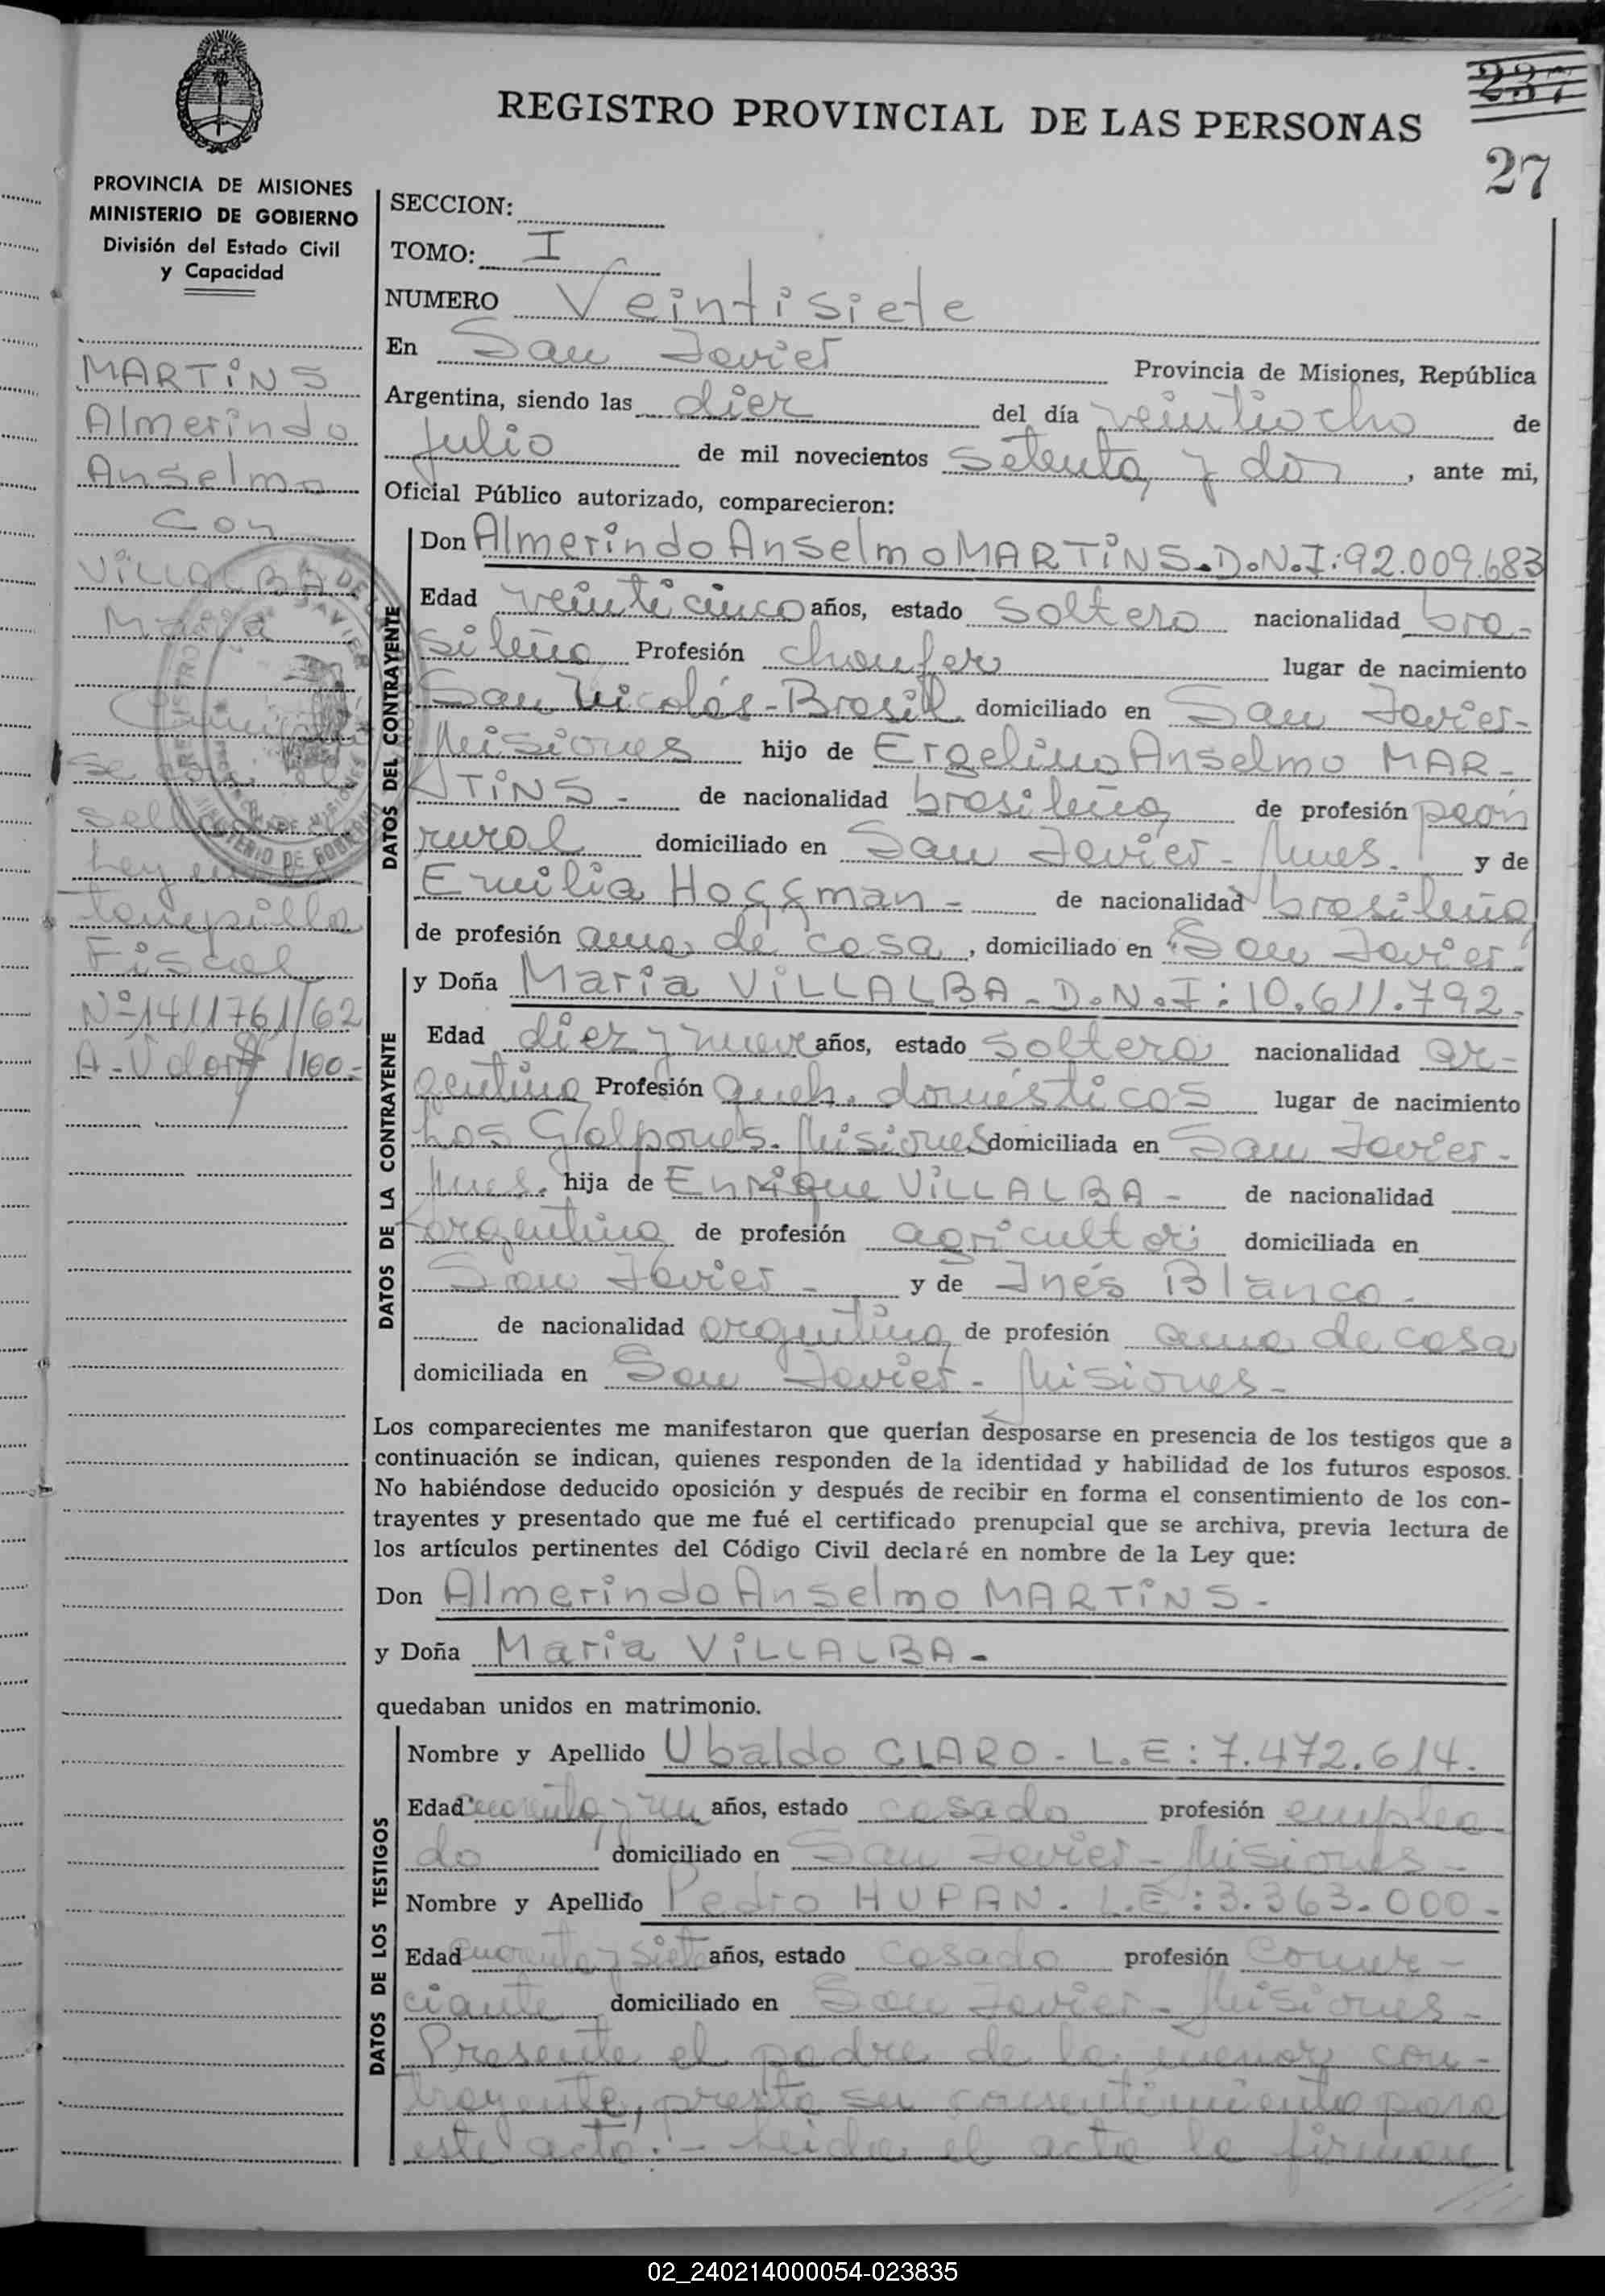 237
REGISTRO PROVINCIAL DE LAS PERSONAS
27
PROVINCIA DE MISIONES
MINISTERIO DE GOBIERNO
División del Estado Civil
y Capacidad
MARTINS
Almerindo
Anselmo
con
VILLALBA
María
se
sell
Ley
tampilla
Fiscal
Nº 1411761/62
A-Valor $ 100.-
SECCION:
TOMO: I
NUMERO Veintisiete
En San Javier Provincia de Misiones, República
Argentina, siendo las diez del día veintiocho de
Julio de mil novecientos setenta y dos, ante mi,
Oficial Público autorizado, comparecieron:
DATOS DEL CONTRAYENTE
Don Almerindo Anselmo MARTINS. D.N.I: 92.009.683
Edad veinticinco años, estado soltero nacionalidad bra-
sileña Profesión choufer lugar de nacimiento
San Nicolás-Brasil domiciliado en San Javier-
Misiones hijo de Ergelino Anselmo MAR-
TINS- de nacionalidad brasileña de profesión peón
rural domiciliado en San Javier-Mnes. y de
Emilia Hoffman- de nacionalidad brasileña
de profesión ama de casa, domiciliado en San Javier-
DATOS DE LA CONTRAYENTE
y Doña María VILLALBA- D.N.I: 10.611.792.
Edad diez y nueve años, estado soltera nacionalidad ar-
gentina Profesión queh. domésticos lugar de nacimiento
Los Galpones-Misiones domiciliada en San Javier-
Mnes. hija de Enrique VILLALBA- de nacionalidad
argentina de profesión agricultor domiciliada en
San Javier- y de Inés Blanco-
de nacionalidad argentina de profesión ama de casa
domiciliada en San Javier-Misiones-
Los comparecientes me manifestaron que querían desposarse en presencia de los testigos que a
continuación se indican, quienes responden de la identidad y habilidad de los futuros esposos.
No habiéndose deducido oposición y después de recibir en forma el consentimiento de los con-
trayentes y presentado que me fué el certificado prenupcial que se archiva, previa lectura de
los artículos pertinentes del Código Civil declaré en nombre de la Ley que:
Don Almerindo Anselmo MARTINS-
y Doña María VILLALBA-
quedaban unidos en matrimonio.
DATOS DE LOS TESTIGOS
Nombre y Apellido Ubaldo CLARO- L.E: 7.472.614.
Edad cuarenta y un años, estado casado profesión emplea
do domiciliado en San Javier-Misiones-
Nombre y Apellido Pedro HUPAN. L.E: 3.363.000-
Edad cuarenta y siete años, estado casado profesión comer-
ciante domiciliado en San Javier-Misiones-
Presente el padre de la menor con-
trayente, presta su consentimiento para
este acto.- Leida el acta la firman
02_240214000054-023835